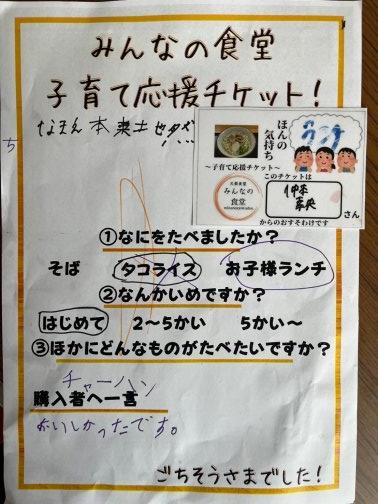 みんなの食堂
子育て応援チケット!
ほんの
気持ち
~子育て応援チケット~
このチケットは
みんなの
食堂
さん
からのおすそわけです
①なにをたべましたか?
そば タコライス お子様ランチ
②なんかいめですか?
はじめて 2~5かい 5かい~
③ほかにどんなものがたべたいですか?
チャーハン
購入者へ一言
おいしかったです。
ごちそうさまでした!